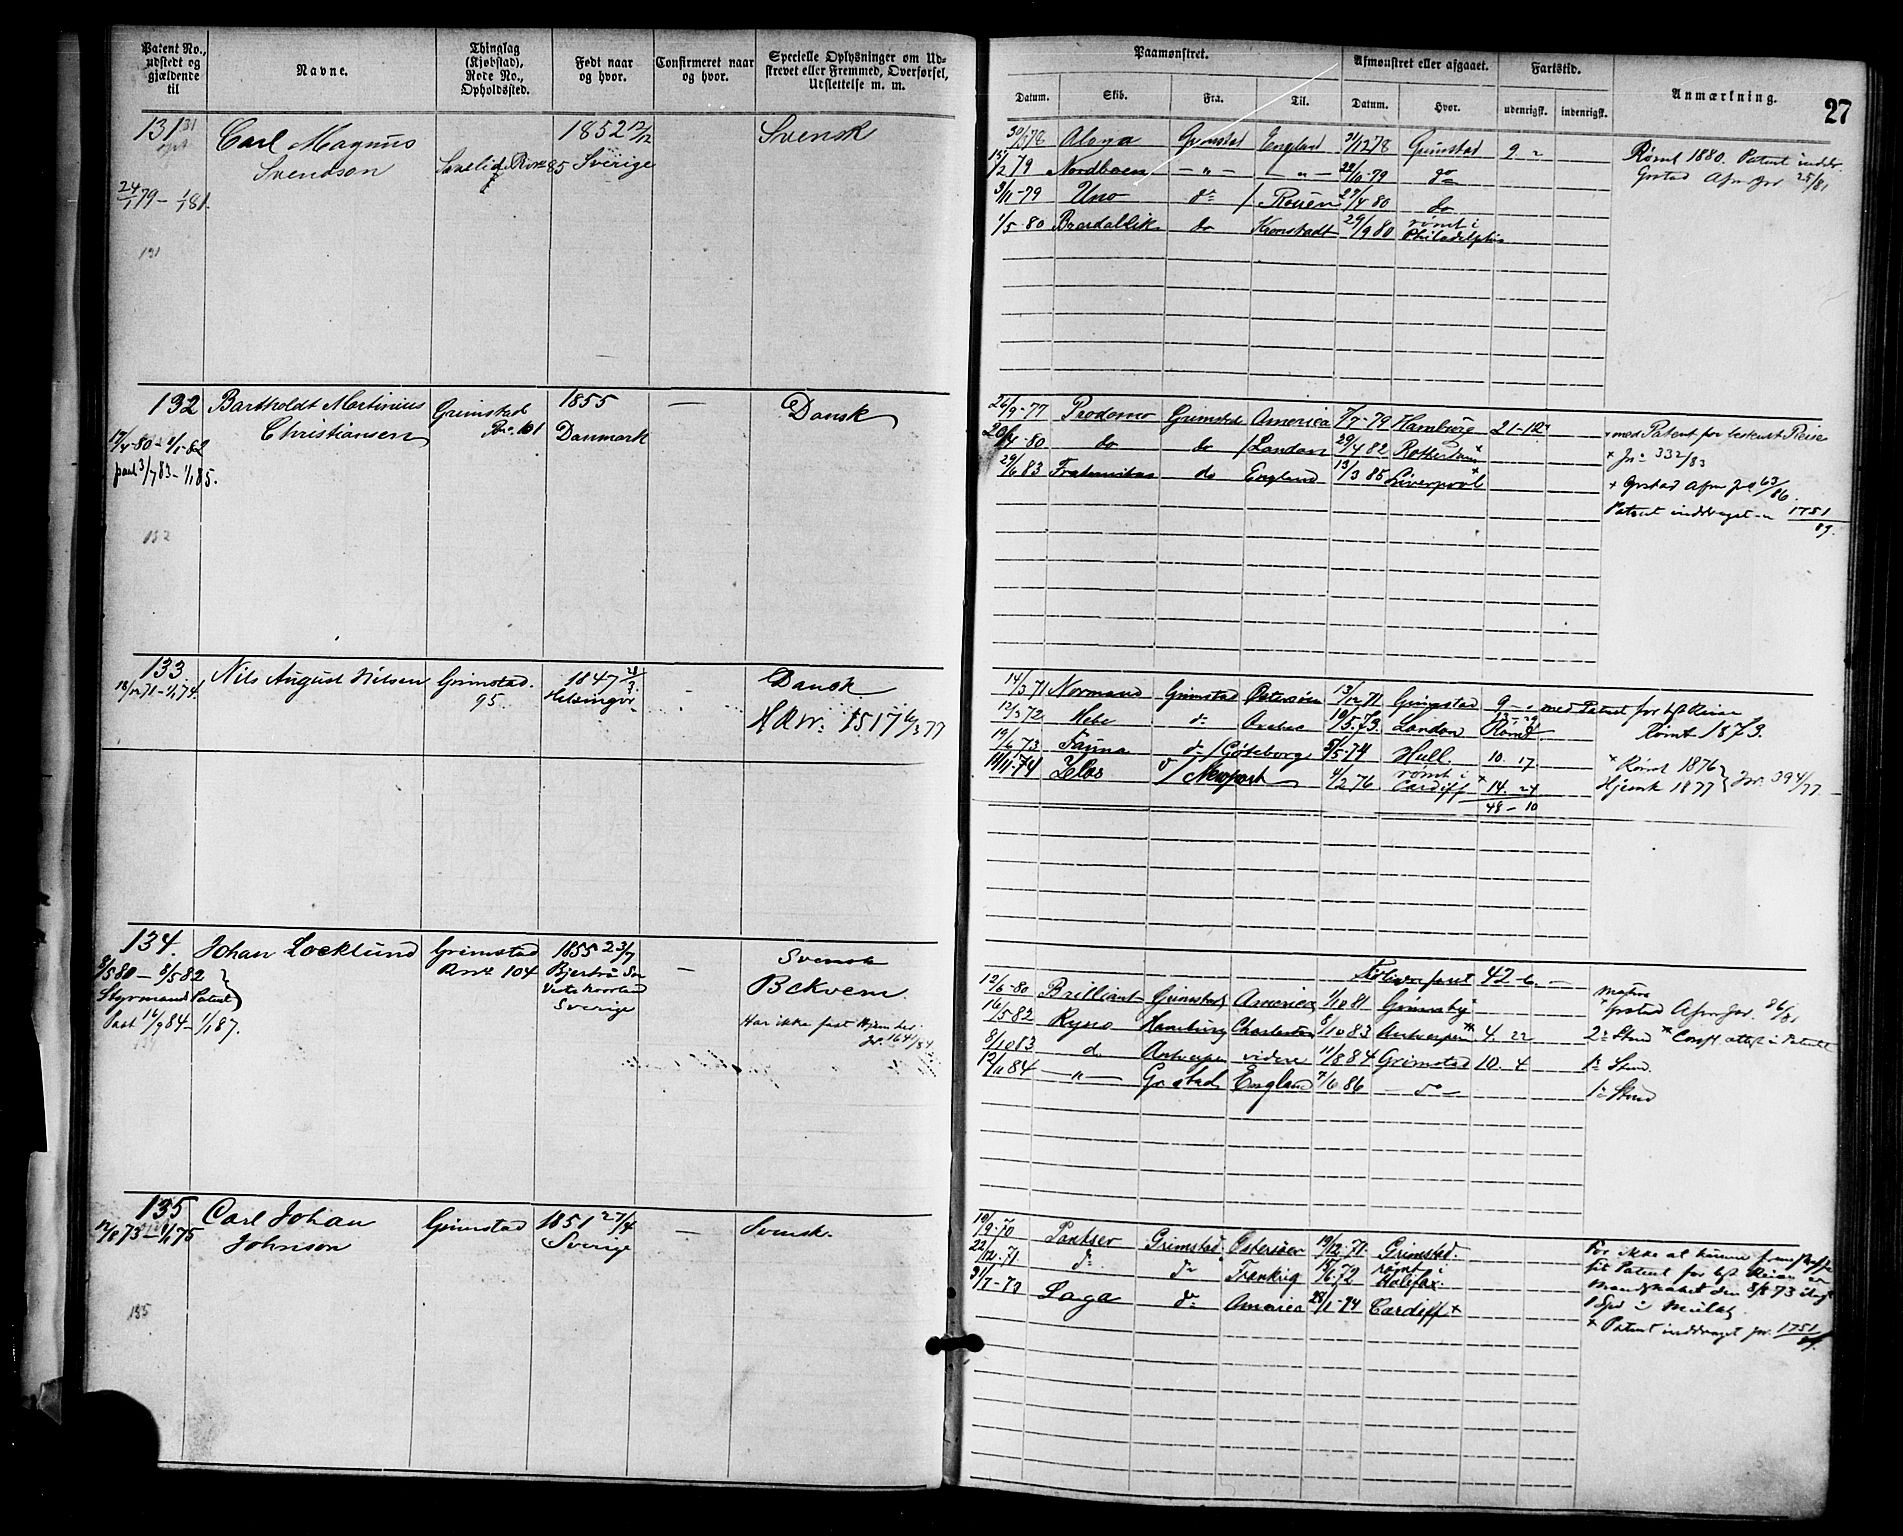 Patent No., udstedt og gjældende til
Navne.
Thinglag (Kjøbstad), Rode No., Opholdssted.
Født naar og hvor.
Confirmeret naar og hvor.
Specielle Oplysninger om Udskrevet eller Fremmed, Overførsel, Udslettelse m. m.
Paamønstret.
Afmønstret eller afgaaet.
Fartstid.
Anmærkning.
27
Datum.
Skib.
Fra.
Til.
Datum.
Hvor.
udenrigsk.
indenrigsk.
131
Carl Magnus
Svendson
1852 12/12
Sverige
Svensk
24/1 79 - 1/1 81.
131
Grimstad England 31/12 78 Grimstad 9
Rømt 1880. Patent inddr.
Grstad Afm Jor 25/81
15/2 79 Nordboen — " — — " — 22/10-79 do
3/11-79 Uno do / Rouen 27/4 80 do
1/5-80 do Kronstadt 29/9 80 rømt i Philadelphia
132 Bartholdt Martinius
Christiansen
Grimstad
Rno. 101
1855
Danmark
—
Dansk
17/4-80 - 1/1-82
paal 3/7 83 - 1/1 85.
132
26/9-77 Prodomo Grimstad America 7/7-79 Hambure 21-12
+ med Patent for bestemt Reise
20/4-80 do do / London 29/4 82 Rotterdam +
+ Jno 332/83
29/6 83 Fraternitas do England 13/3 85 Liverpool +
+ Grstad Afm Jno 63/86.
Patent inddraget 1751/89.
133
18/12 71 - 1/1 74
Nils August Nilsen
Grimstad.
95.
1847 28/9
Helsingør
Dansk
HR No. 1517 6/3 77
14/3 71 Normand Grimstad Østersøen 13/12 71 Grimstad 9 — med Patent for bst Reise
12/3 72 Hebe do 10/5.73. London Rømt
Rømt 1873.
19/6 73 Fauna do / Göteborg 5/5-74 Hull 10. 17
+ Rømt 1876
11/11-74 Zelos / Newport 4/2 76 rømt i Cardiff + 14. 24
48 - 10
Hjemk 1877 } Jor. 394/77
134. Johan Locklund
Grimstad
Rno 104
1855 23/7
Sverige
—
Svensk
Bekvem.
8/5 80 — 8/5 82
Styrmands Patent
Past 16/9 84 - 1/1 87.
Har ikke fast Hjemsted
Jr. 1641/84
42 - 6. —
12/6-80 Brilliant Grimstad America 1/10 81 Grimsby
+ Grstad Afm Jor. 86/81
16/5 82 Ryno Hamburg Charleston 6/10 83 Antwerpen 4. 22
8/10 83 do Antwerpen videre 11/8 84 Grimstad 10. 4
12/11 84 — " — Grstad England 7/6 86 — do —
135
12/8 73 - 1/1 75
Carl Johan
Johnson
Grimstad
1851 27/4
Sverige
—
Svensk.
135
10/9-70 Pantser Grimstad. Østersøen 19/12-71. Grimstad.
22/12-71 do do Frankrig 15/6.72 rømt i Halifax.
31/7-73 Saga do America 28/1-74 Cardiff +
For ikke at kunne
sit Patent for bst Reise er
+ Patent inddraget Jor. 1751/89.